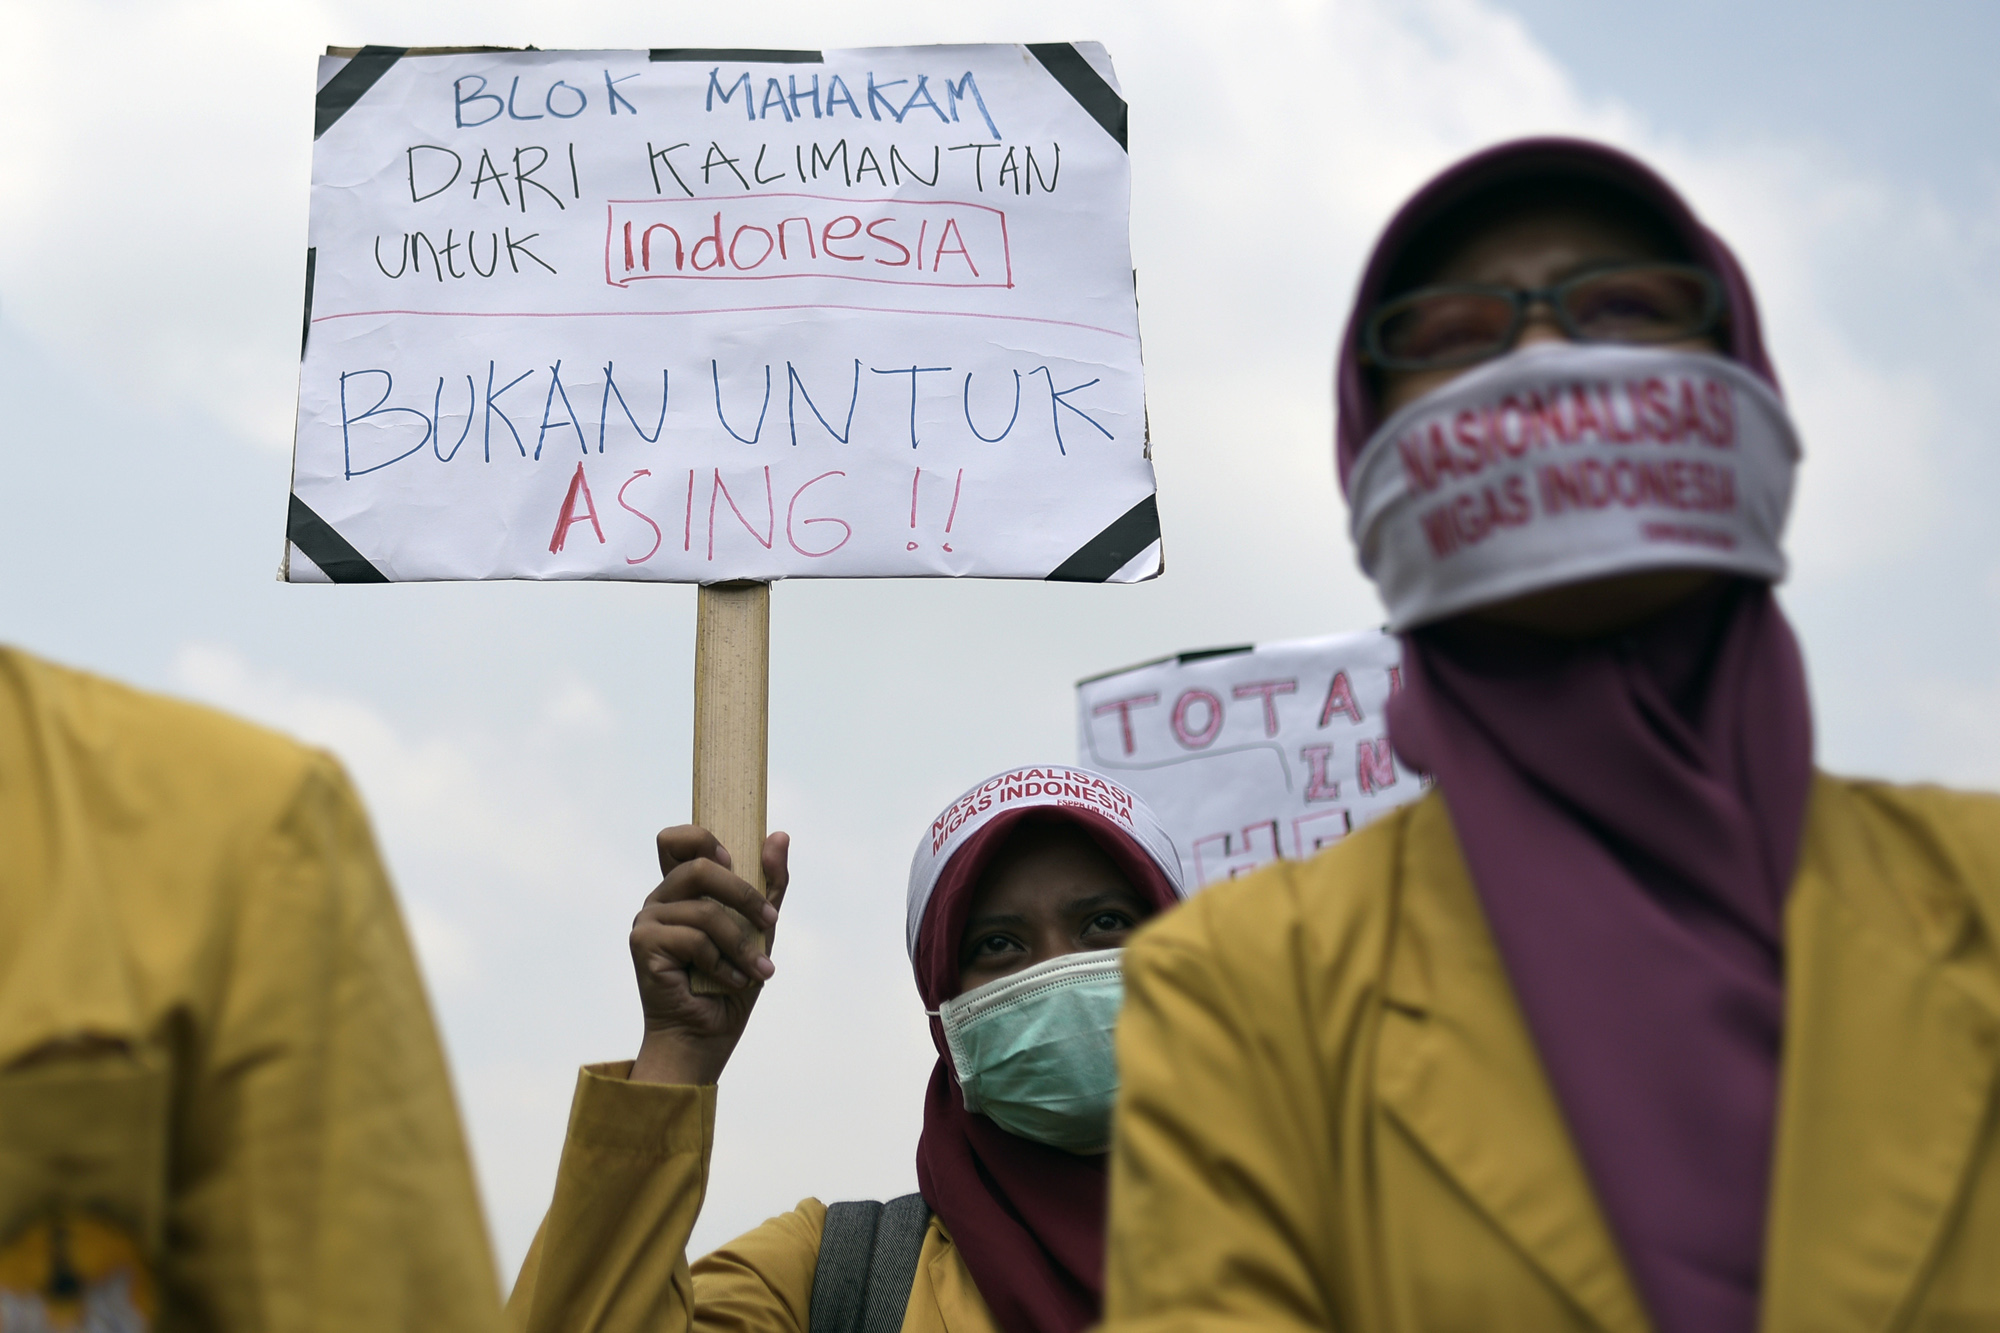 BLOK MAHAKAM
DARI KALIMANTAN
untuk IndonesIA
BUKAN UNTUK
ASING !!
NASIONALISASI
MIGAS INDONESIA
TOTA
IN
NASIONALISASI
MIGAS INDONESIA